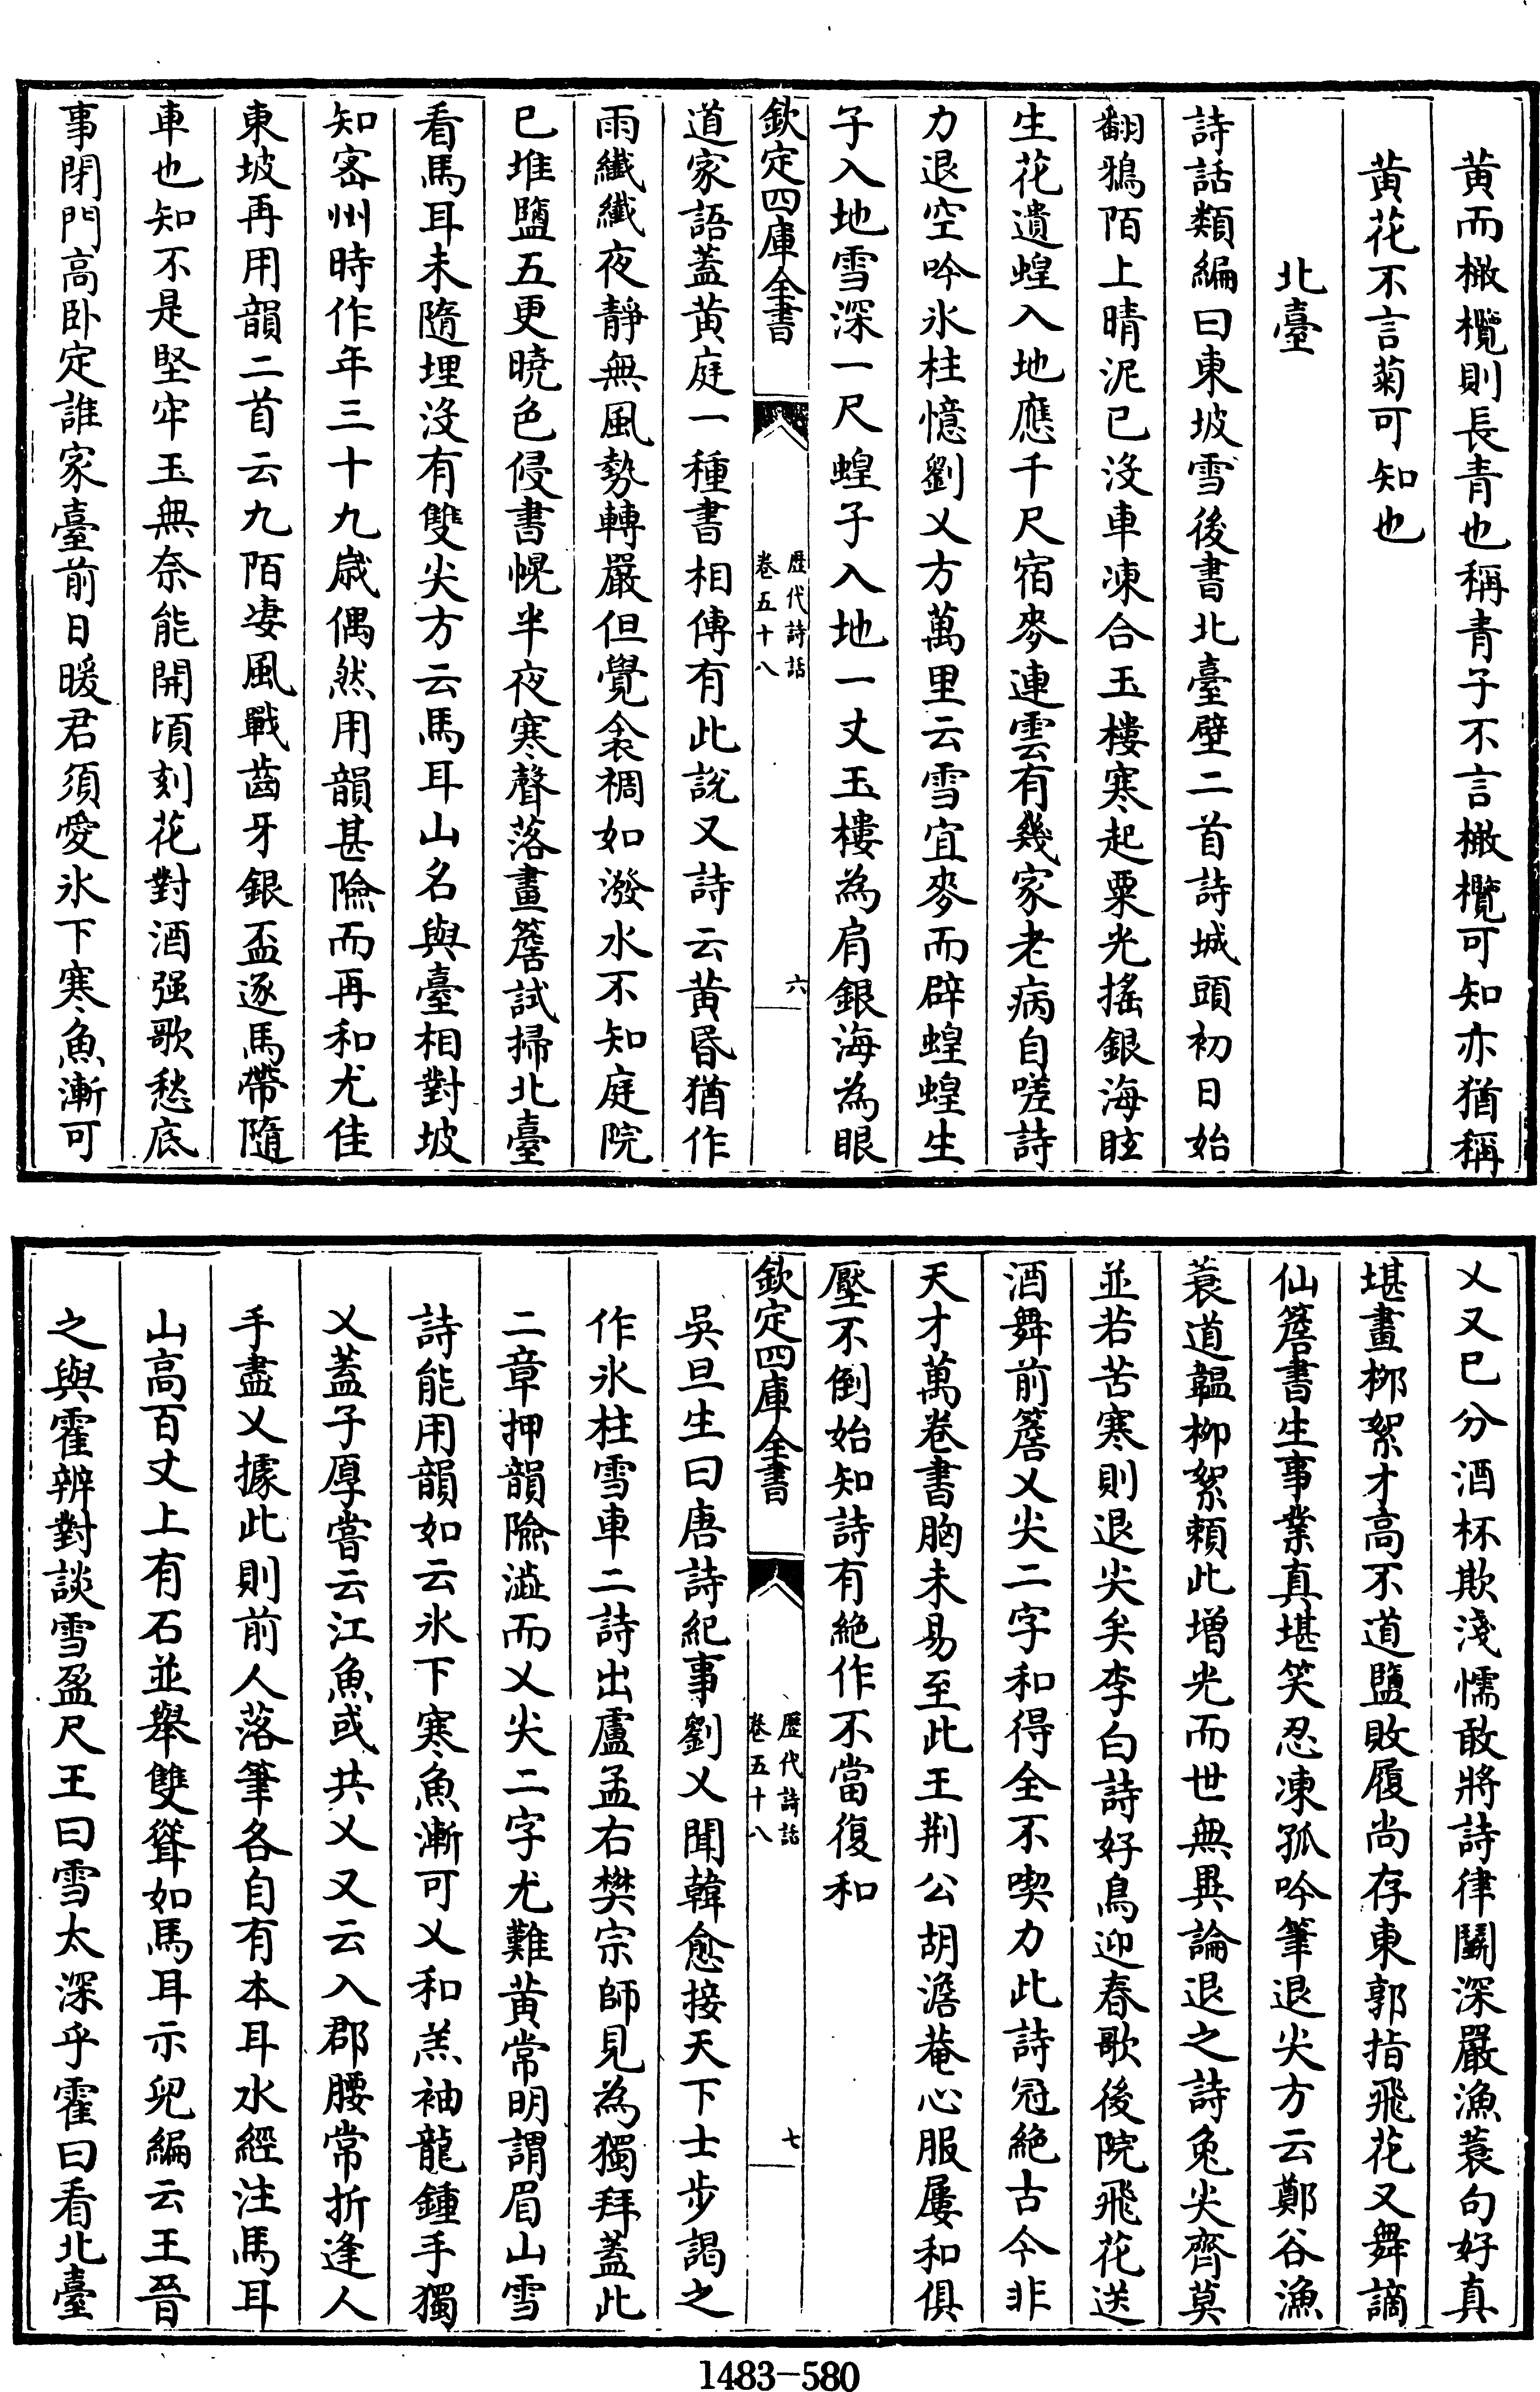 黄而橄欖則長青也稱青子不言橄欖可知亦猶稱
黄花不言菊可知也
北臺
詩話類編曰東坡雪後書北臺壁二首詩城頭初日始
翻鴉陌上晴泥已没車凍合玉樓寒起粟光摇銀海眩
生花遺蝗入地應千尺宿麥連雲有幾家老病自嗟詩
力退空吟氷柱憶劉乂方萬里云雪宜麥而辟蝗蝗生
子入地雪深一尺蝗子入地一丈玉樓為肩銀海為眼
欽定四庫全書
歴代詩話
卷五十八
六
道家語蓋黄庭一種書相傳有此説又詩云黄昏猶作
雨纖纖夜靜無風勢轉嚴但覺衾裯如潑水不知庭院
已堆鹽五更曉色侵書幌半夜寒聲落畫簷試掃北臺
看馬耳未隨埋没有雙尖方云馬耳山名與臺相對坡
知宻州時作年三十九歳偶然用韻甚險而再和尤佳
東坡再用韻二首云九陌凄風戰齒牙銀盃逐馬帶隨
車也知不是堅牢玉無奈能開頃刻花對酒强歌愁底
事閉門高卧定誰家臺前日暖君須愛氷下寒魚漸可
乂又已分酒杯欺淺懦敢將詩律鬭深嚴漁蓑句好真
堪畫柳絮才高不道鹽敗履尚存東郭指飛花又舞謫
仙簷書生事業真堪笑忍凍孤吟筆退尖方云鄭谷漁
蓑道韞柳絮賴此增光而世無異論退之詩兔尖齊莫
並若苦寒則退尖矣李白詩好鳥迎春歌後院飛花送
酒舞前簷乂尖二字和得全不喫力此詩冠絶古今非
天才萬卷書胸未易至此王荆公胡澹菴心服屢和俱
壓不倒始知詩有絶作不當復和
欽定四庫全書
歴代詩話
卷五十八
七
吳旦生曰唐詩紀事劉乂聞韓愈接天下士步謁之
作氷柱雪車二詩出盧孟右樊宗師見為獨拜蓋此
二章押韻險澁而乂尖二字尤難黄常明謂眉山雪
詩能用韻如云氷下寒魚漸可乂和羔袖龍鍾手獨
乂蓋子厚嘗云江魚或共乂又云入郡腰常折逢人
手盡乂據此則前人落筆各自有本耳水經注馬耳
山高百丈上有石並舉雙聳如馬耳示兒編云王晉
之與霍辨對談雪盈尺王曰雪太深乎霍曰看北臺
1483-580